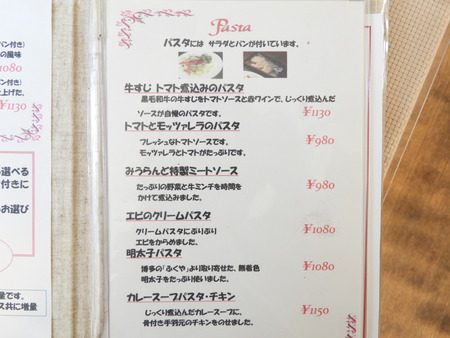 Pasta
パスタには サラダとパンが付いています。
牛すじ トマト煮込みのパスタ
黒毛和牛の牛すじをトマトソースと赤ワインで、じっくり煮込んだ
ソースが自慢のパスタです。
¥1130
トマトとモッツァレラのパスタ
¥980
フレッシュなトマトソースです。
モッツァレラとトマトがたっぷりです。
みうらんど特製ミートソース
¥980
たっぷりの野菜と牛ミンチを時間を
かけて煮込みました。
エビのクリームパスタ
¥1080
クリームパスタにぷりぷり
エビをからめました。
明太子パスタ
¥1080
博多の「ふくや」より取り寄せた、無着色
明太子をたっぷり使いました。
カレースープパスタ・チキン
¥1150
じっくり煮込んだカレースープに、
骨付き手羽元のチキンをのせました。
パン付き)
の風味
1080
付き)
仕上げた。
¥1130
選べる
付きに
お選び
量です。
ス共に増量